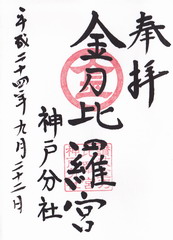 奉拝
金刀比羅宮
神戸分社
平成二十四年九月二十二日